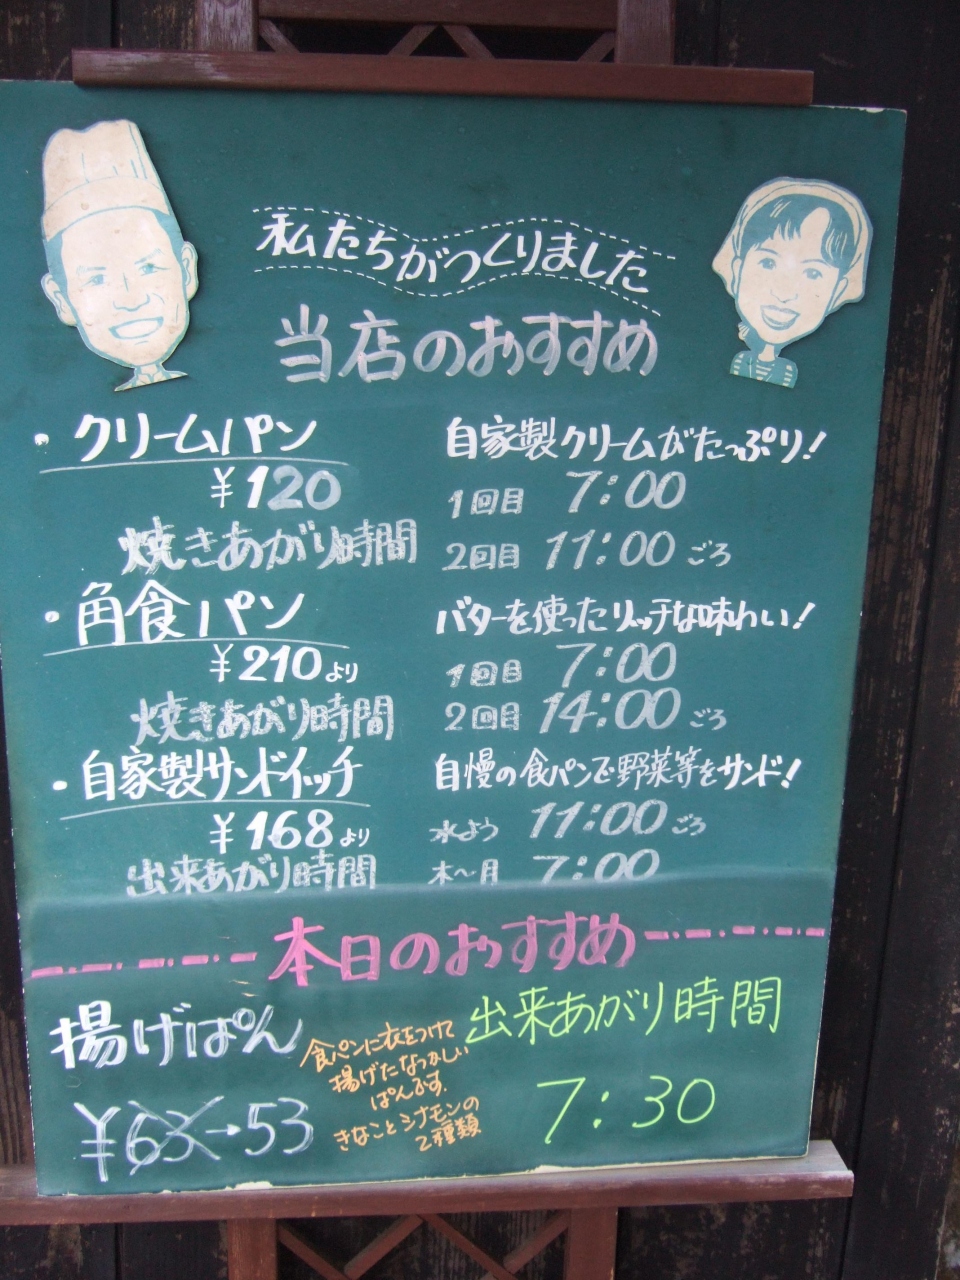 私たちがつくりました
当店のおすすめ
・クリームパン
¥120
自家製クリームがたっぷり!
焼きあがり時間
1回目 7:00
2回目 11:00 ごろ
・角食パン
¥210より
バターを使ったリッチな味わい!
焼きあがり時間
1回目 7:00
2回目 14:00 ごろ
・自家製サンドイッチ
¥168より
自慢の食パンで野菜等をサンド!
出来あがり時間
水よう 11:00 ごろ
木~月 7:00
本日のおすすめ
揚げぱん
¥63→53
食パンに衣をつけて
揚げたなつかしい
ぱんです.
きなことシナモンの
2種類
出来あがり時間
7:30